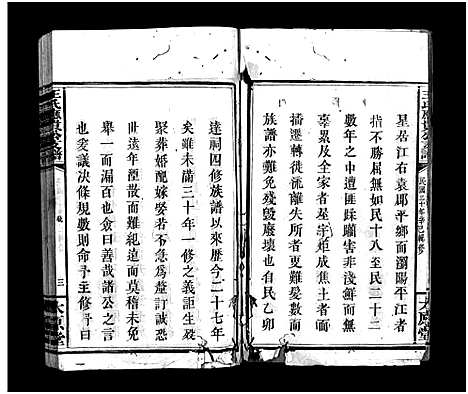 星居江右袁郡平鄉而瀏陽平江者
指不勝屈無如民十八至民二十二
數年之中遭匪蹂躪害非淺鮮而無
辜累及全家者屋宇炬成焦土者而
播遷轉徙流離失所者更難髮數而
族譜亦難免殘毀廢壞也自民乙卯
達祠四修族譜以來歷今二十七年
矣雖未滿三十年一修之義詎生歿
聚葬婚配嫁娶者不急為釐訂誠恐
世遠年湮散而難紀遠而莫稽未免
舉一而漏百僉曰善哉諸公之言
也爰議決條規數則命予主修予曰
民國三十年辛巳
太原堂
三
太原堂